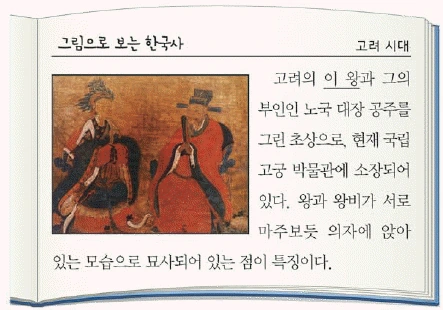 그림으로 보는 한국사
고려 시대
고려의 이 왕과 그의
부인인 노국 대장 공주를
그린 초상으로, 현재 국립
고궁 박물관에 소장되어
있다. 왕과 왕비가 서로
마주보듯 의자에 앉아
있는 모습으로 묘사되어 있는 점이 특징이다.